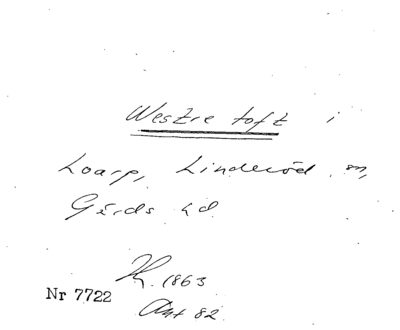 Westre toft i
Loarp, Linderöd sn,
Gärds hd
H. 1863
Nr 7722
Ant 82